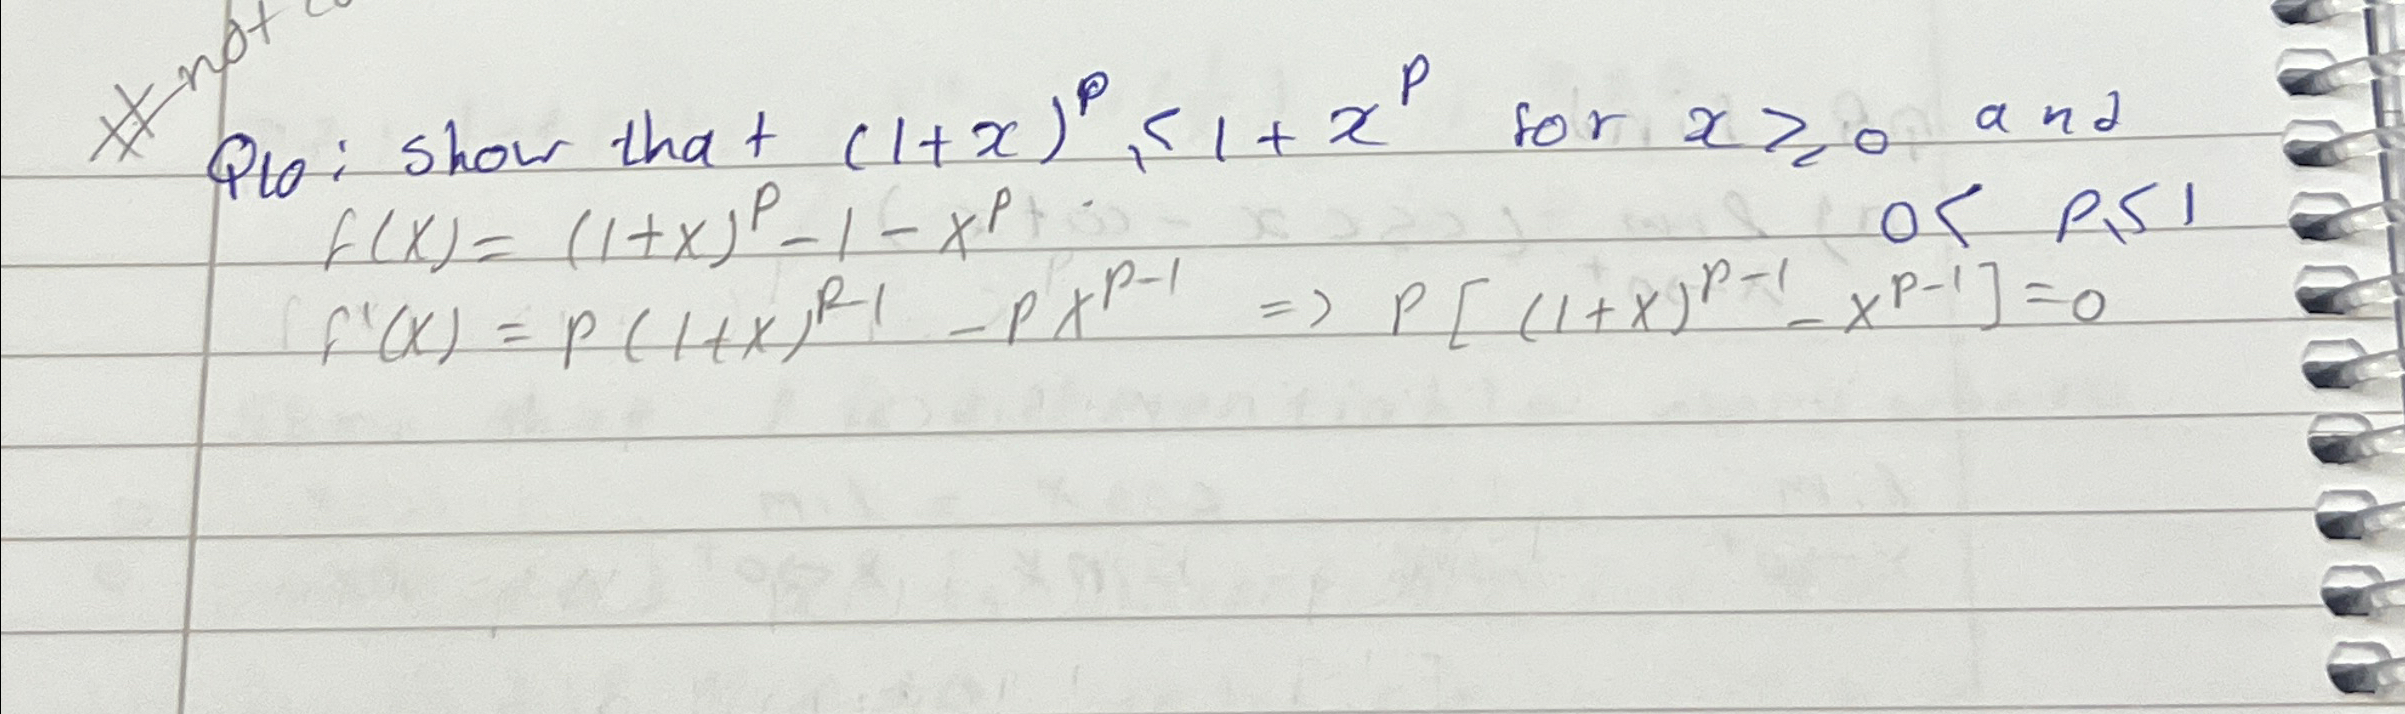 not
Q10: show that (1+x)^p ≤ 1 + x^p for x ≥ 0 and
0 < p ≤ 1
f(x) = (1+x)^p - 1 - x^p
f'(x) = p(1+x)^{p-1} - p x^{p-1} => p[(1+x)^{p-1} - x^{p-1}] = 0